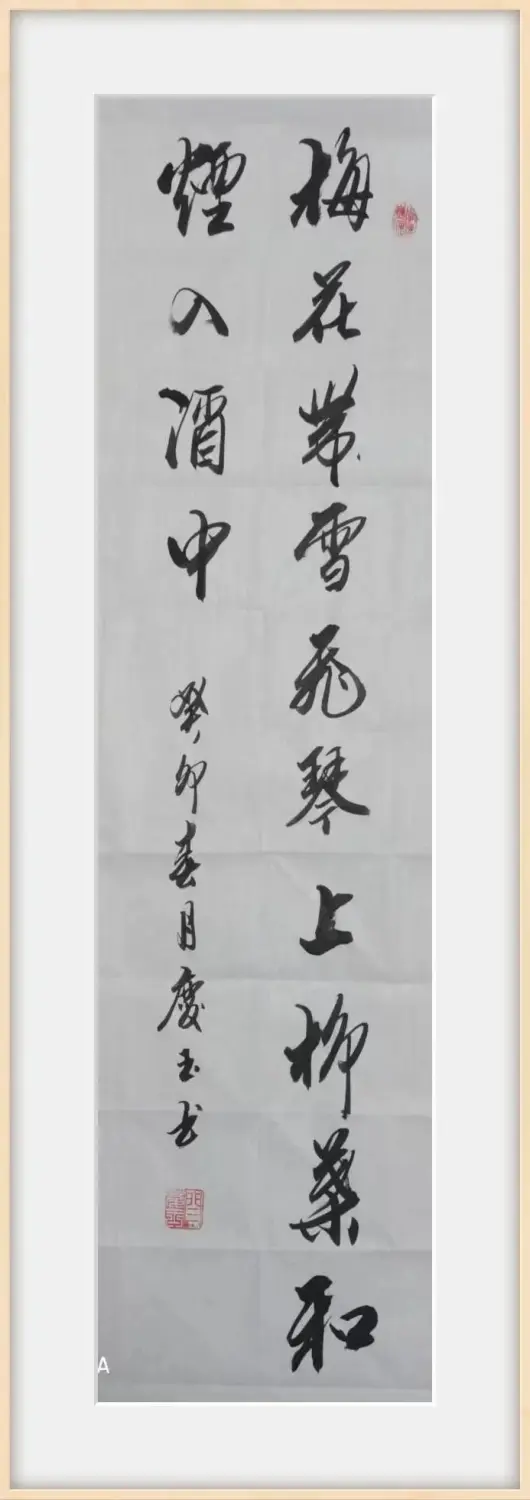 梅花带雪飛琴上柳葉和
煙入酒中
癸卯春月慶玉书
A